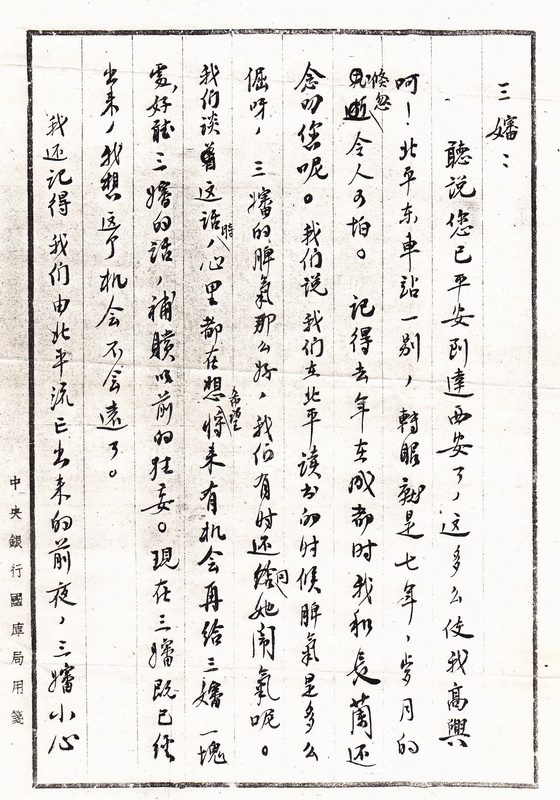 三嬸：
聽說您已平安到達西安了，这多么使我高興
呵！北平东車站一别，轉眼就是七年，岁月的
倏忽逝令人可怕。記得去年在成都时我和長蘭还
念叨您呢。我们说我们在北平读书的时候脾氣是多么
倔呀，三嬸的脾氣那么好，我们有时还同她闹氣呢。
我们谈着这话时，心里都在想希望将来有机会再给三嬸一塊
處，好聽三嬸的話，補贖以前的狂妄。現在三嬸既已經
出来，我想这个机会不会遠了。
我还记得我们由北平流亡出来的前夜，三嬸小心
中央銀行國庫局用箋